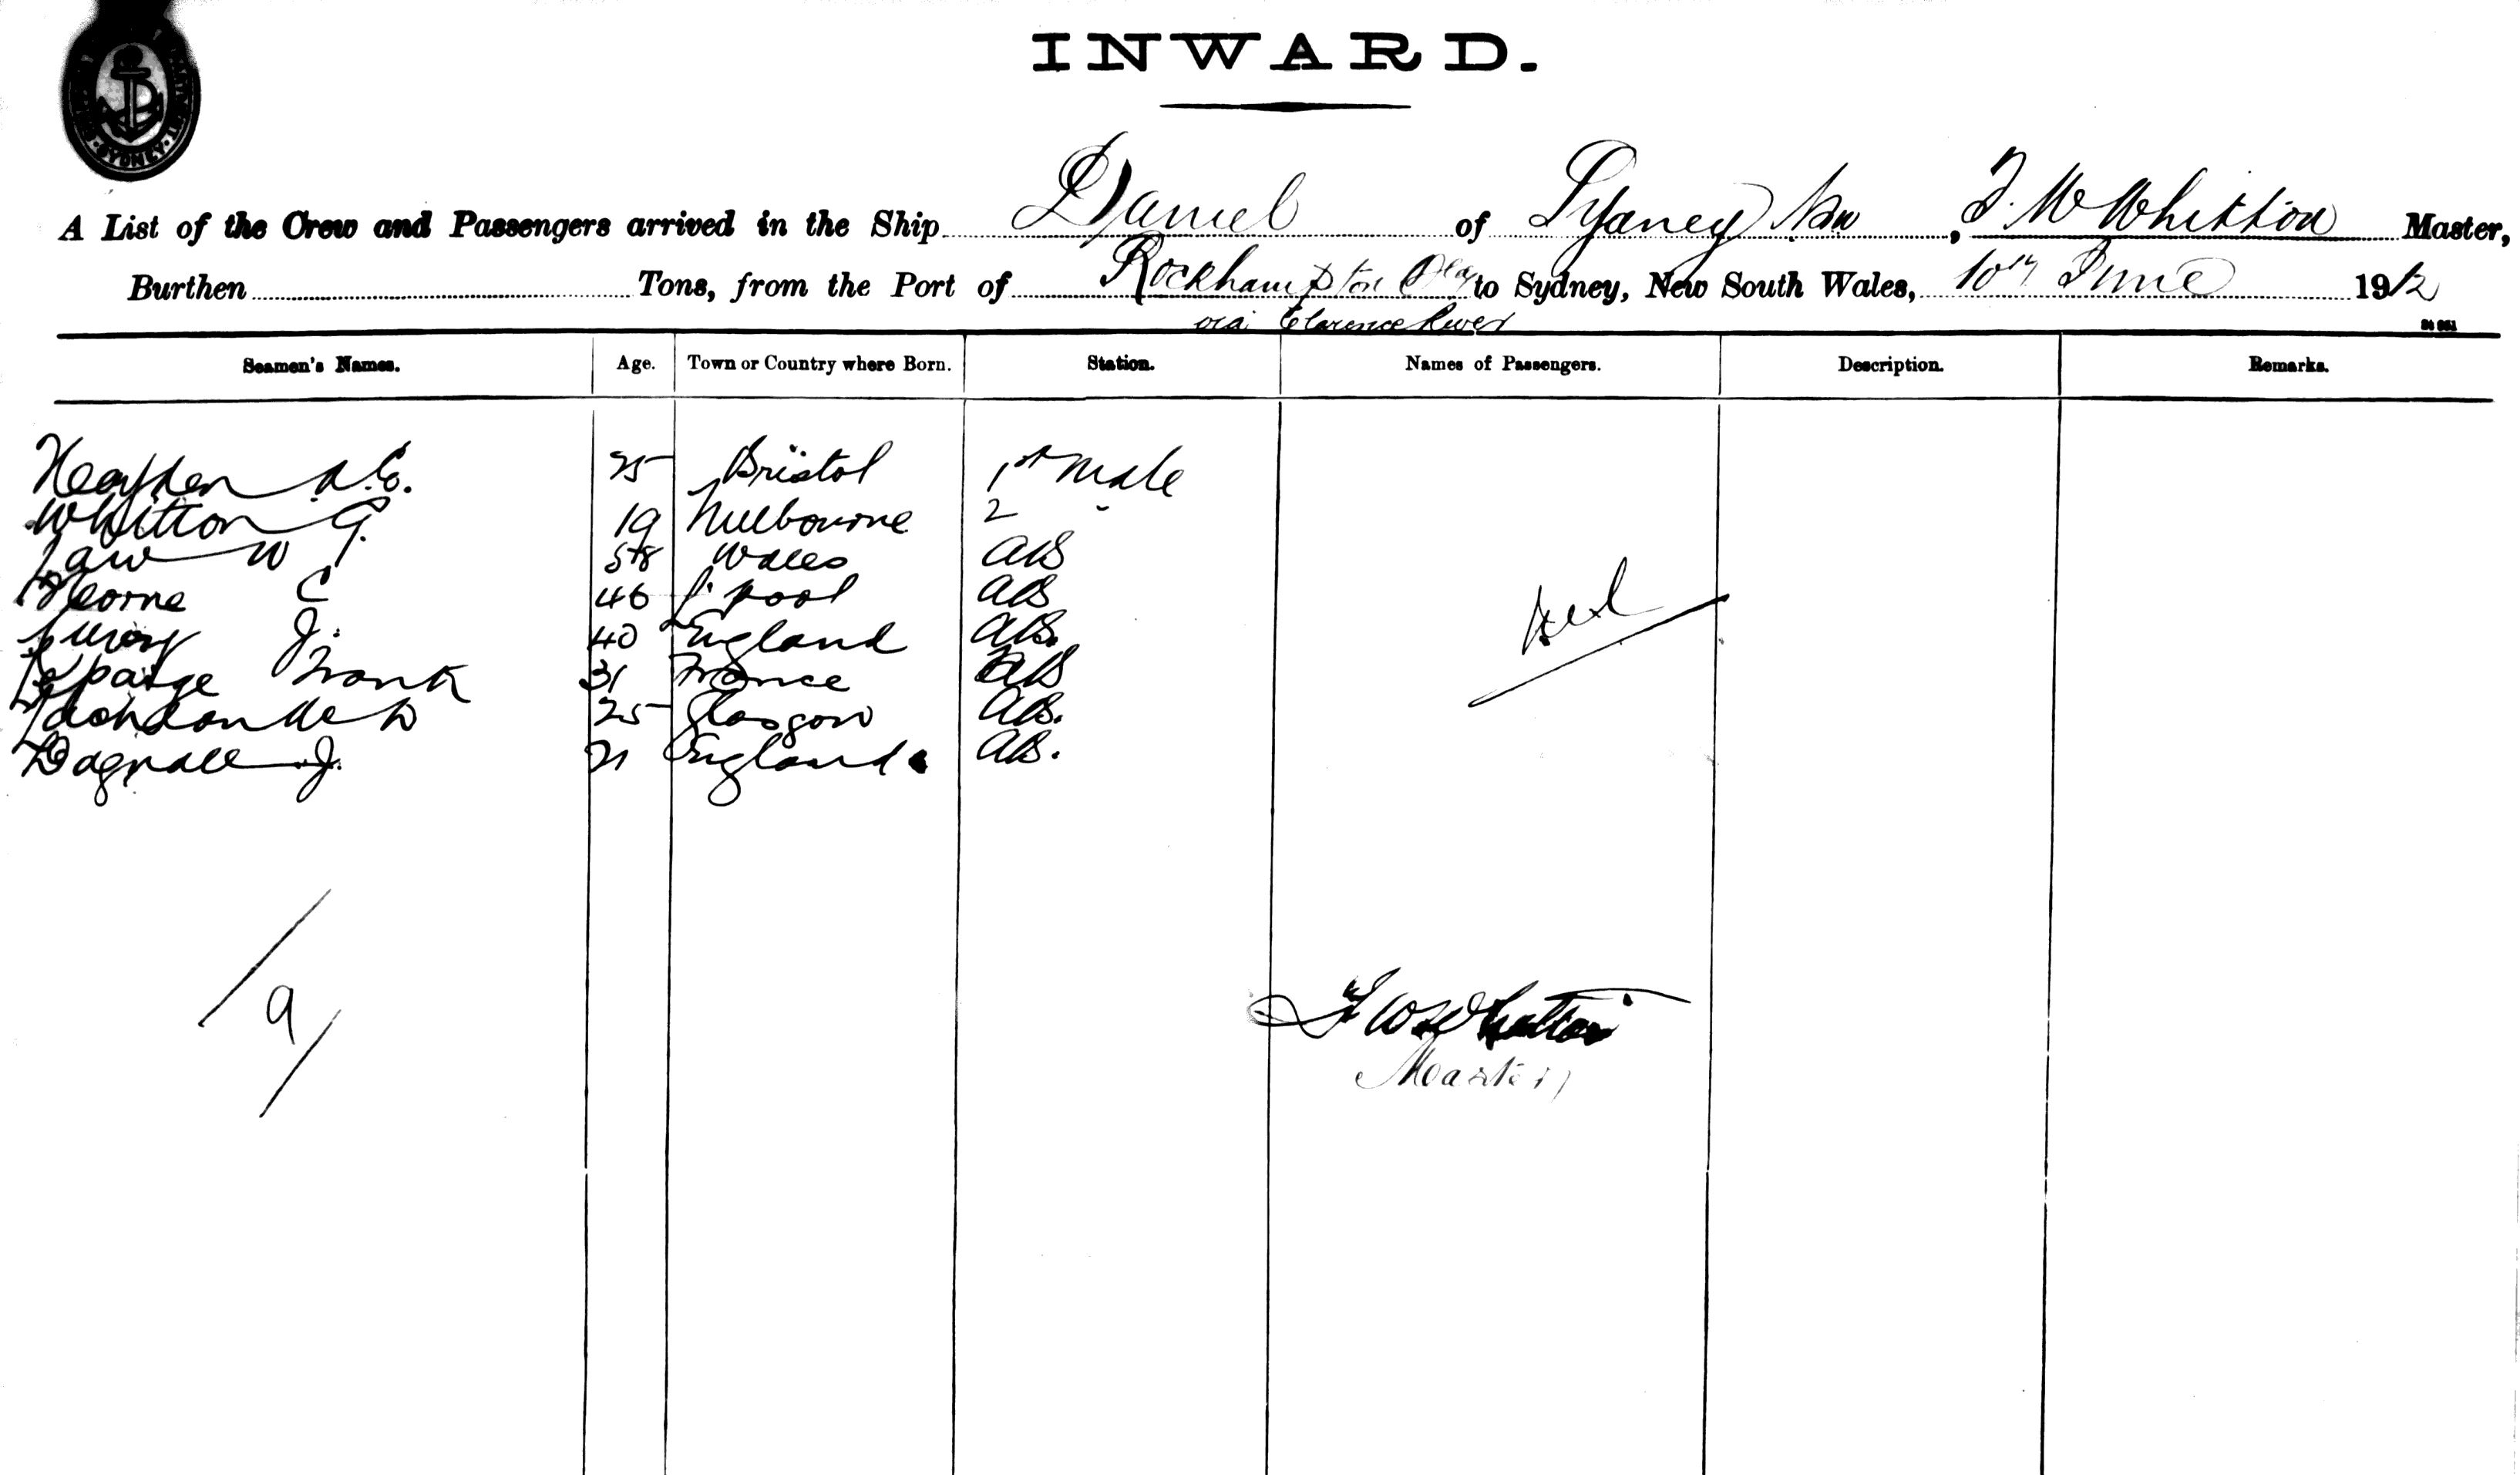 SYDNEY
INWARD.
A List of the Crew and Passengers arrived in the Ship Daniel of Sydney NSW, F. W Whitton Master,
Burthen Tons, from the Port of Rockhampton Qld to Sydney, New South Wales, 10th June 1912
via Clarence River
Seamen's Names. Age. Town or Country where Born. Station. Names of Passengers. Description. Remarks.
25 Bristol 1st Mate
Whitton G. 19 Melbourne 2 "
Law W T. 58 Wales AB
C 46 L'pool AB
J. 40 England AB.
Lepatge Frank 31 France AB
25 Glasgow AB.
Dagnall J. 21 England. AB.
9
F W Whitton
Master